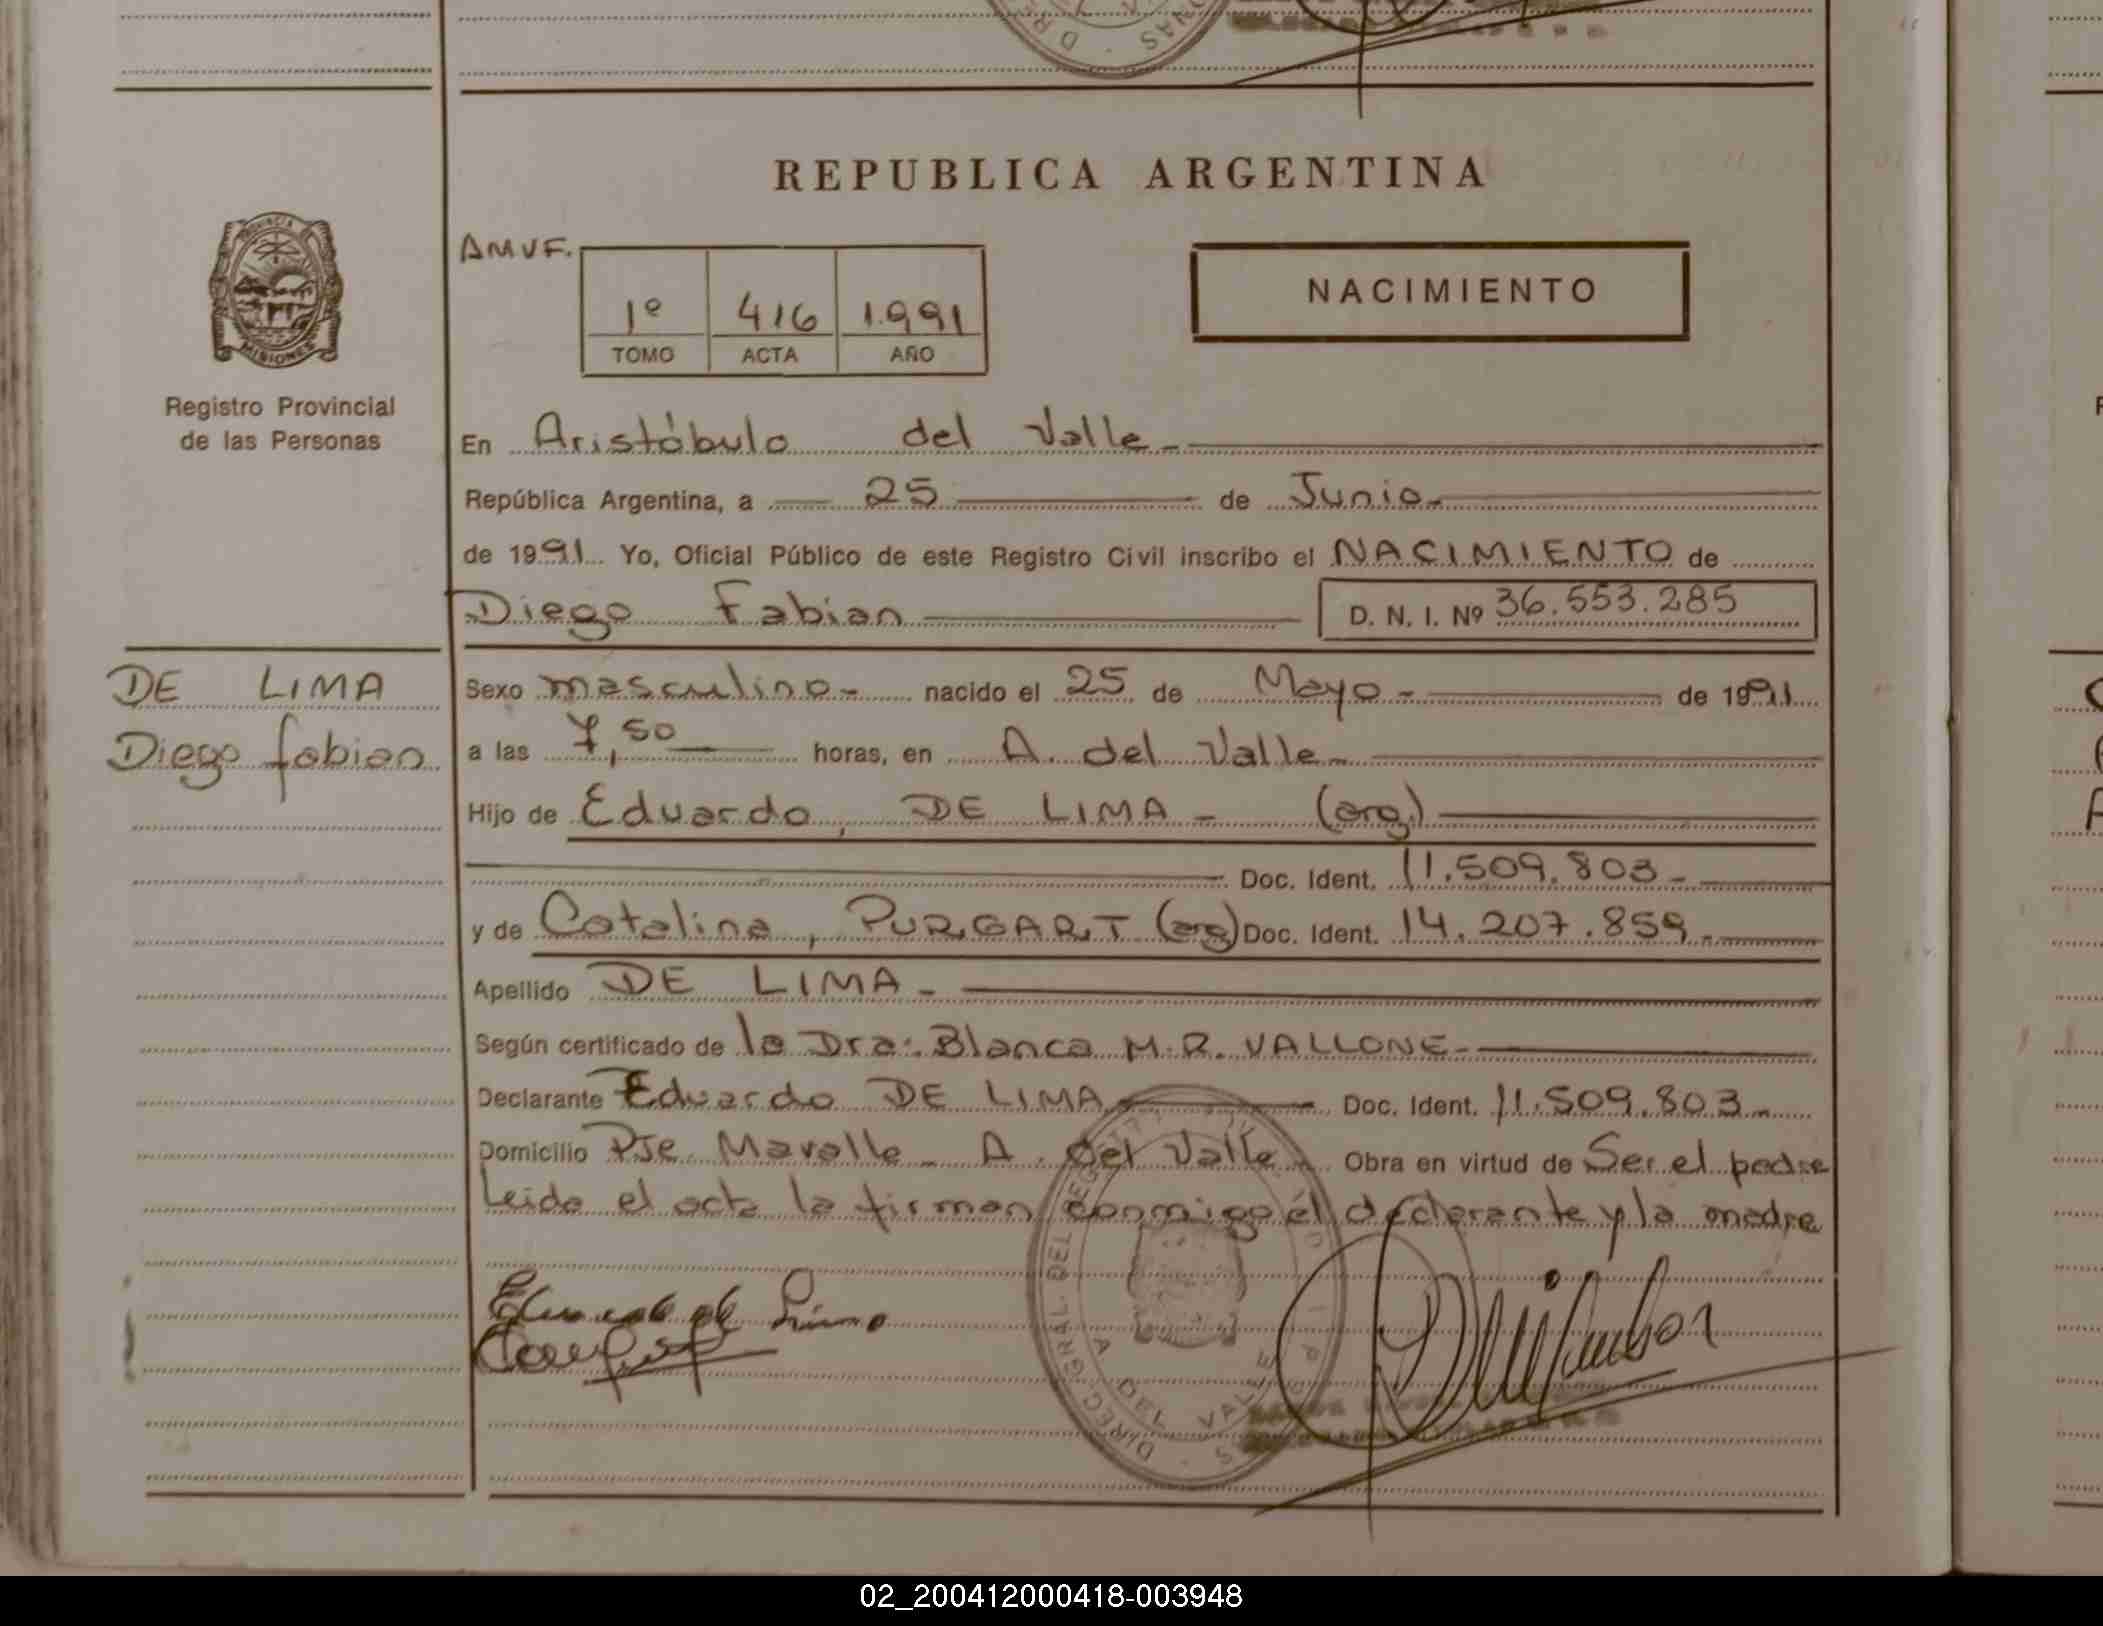 REPUBLICA ARGENTINA
PROVINCIA
MISIONES
Registro Provincial
de las Personas
AMVF.
1º 416 1.991
TOMO ACTA AÑO
NACIMIENTO
En Aristóbulo del Valle -
República Argentina, a 25 de Junio -
de 1991 Yo, Oficial Público de este Registro Civil inscribo el NACIMIENTO de
Diego Fabian D. N. I. Nº 36.553.285
DE LIMA
Diego fabian
Sexo masculino - nacido el 25 de Mayo - de 1991
a las 7,50 horas, en A. del Valle -
Hijo de Eduardo, DE LIMA - (arg)
Doc. Ident. 11.509.803 -
y de Catalina, PURGART (arg) Doc. Ident. 14.207.859 -
Apellido DE LIMA -
Según certificado de la Dra. Blanca M.R. VALLONE -
Declarante Eduardo DE LIMA Doc. Ident. 11.509.803 -
Domicilio Pje. Mavalle - A. del Valle - Obra en virtud de Ser el padre
Leida el acta la firman conmigo él declarante y la madre
DIREC. GRAL. DEL
A. DEL VALLE
02_200412000418-003948